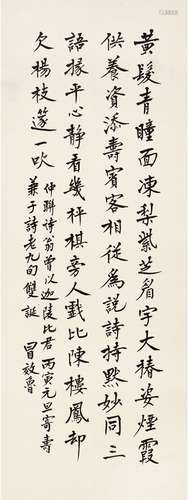 黃髮青瞳面凍梨紫芝眉宇大椿姿煙霞
供養資添壽賓客相從為說詩持默妙同三
語掾平心靜看幾枰棋旁人戲比陳樓鳳卻
欠楊枝篴一吹
仲聯詩翁曾以迦陵比君丙寅元旦寄壽
兼子詩老九旬雙誕
冒效魯